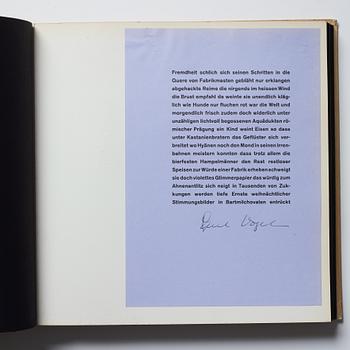 Fremdheit schlich sich seinen Schritten in die
Quere von Fabrikmasten gebläht nur erklangen
abgehackte Reime die nirgends im heissen Wind
die Brust empfahl da weinte sie unendlich kläg-
lich wie Hunde nur fluchen rot war die Welt und
morgendlich frisch zudem doch widerlich unter
unzähligen lichtvoll begossenen Aquädukten rö-
mischer Prägung ein Kind weint Eisen so dass
unter Kastanienbratern das Geflüster sich ver-
breitet wo Hyänen noch den Mond in seinen irren-
benen meistern konnten dass trotz allem die
bierfesten Hampelmänner den Rest restloser
Speisen zur Würde einer Fabrik erheben achweigt
sie doch violettes Glimmerpapier das würdig zum
Ahnenantlitz sich neigt in Tausenden von Zuk-
kungen werden tiefe Ernste weihnächtlicher
Stimmungsbilder in Bartmilchovaten entrückt
Vogel